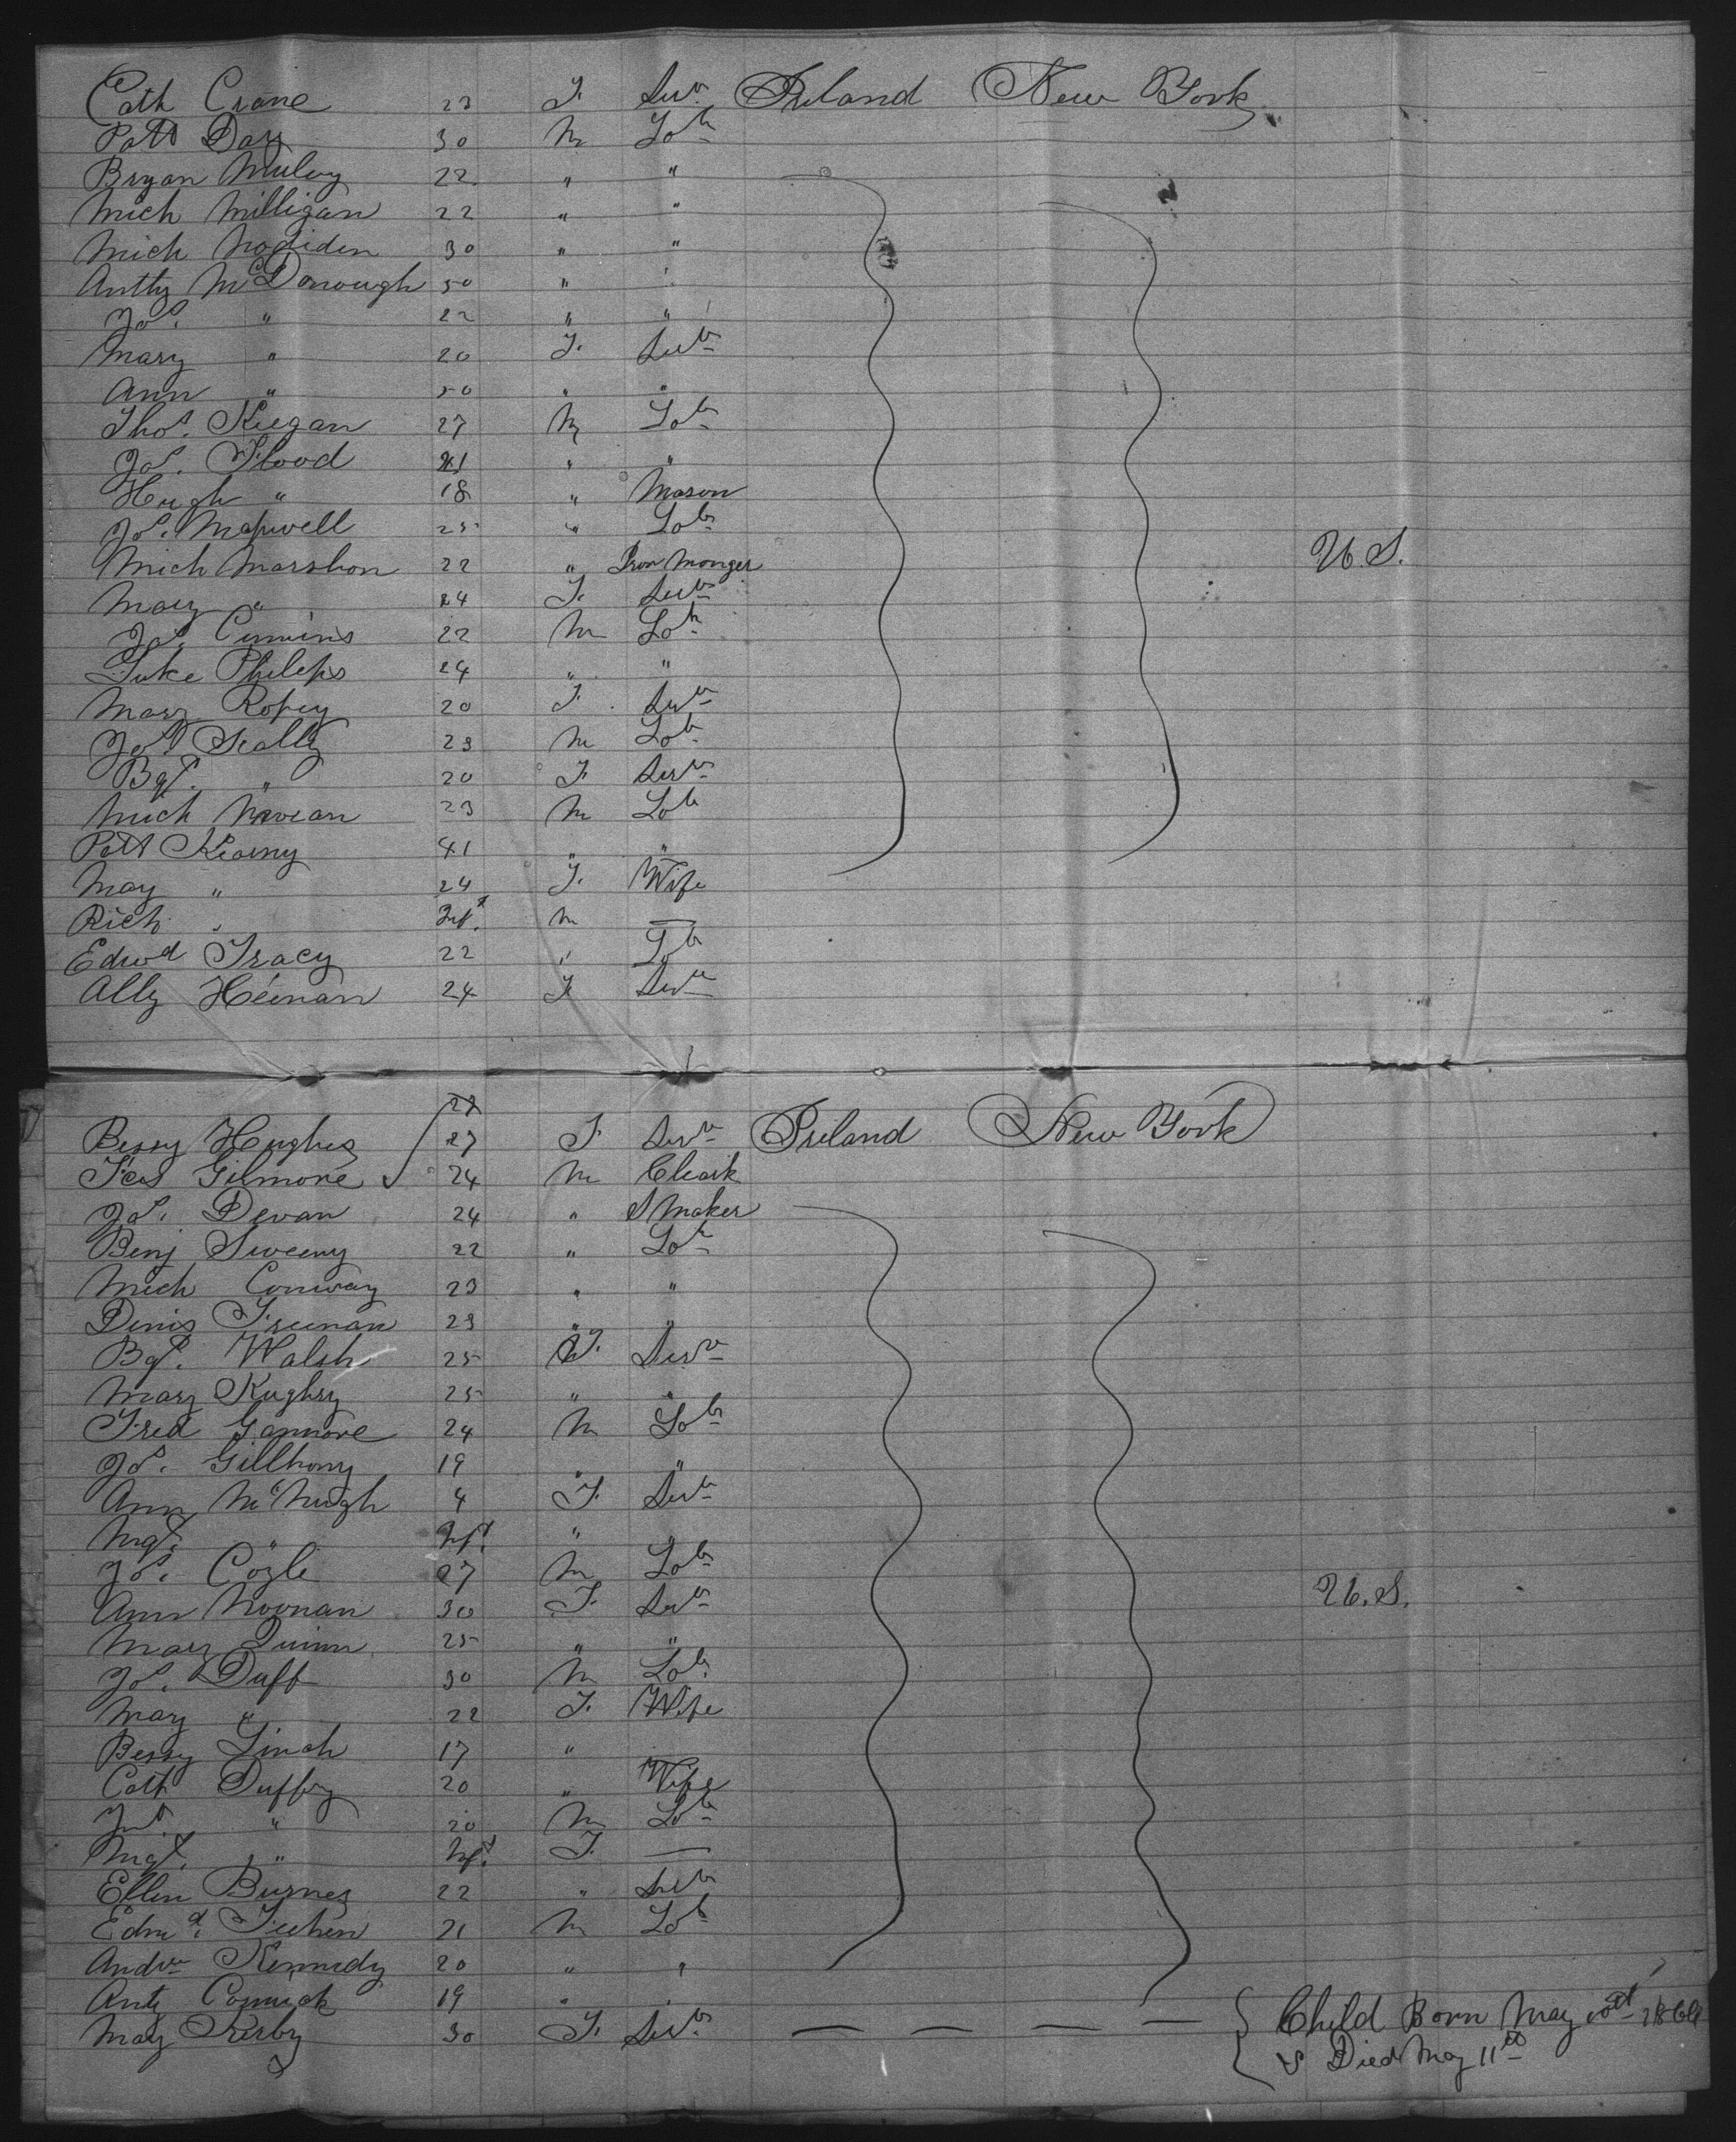 Cath Crane 23 F. Servt Ireland New York
Patt Day 30 M Labr
Bryan Mulvy 22 " "
Mich Milligan 22 " "
Mich 30 " "
Antthy McDonough 50 "
Jas. " 22 " "
Mary " 20 F. Servt
Ann " 50 " "
Thos. Keegan 27 M Labr
Jas. Flood 21 " "
Hugh " 18 " Mason
Jas. Maxwell 25 " Labr
Mich 22 " Iron Monger
Mary " 24 F. Servt U.S.
Jas. Cumins 22 M Labr
Luke Phileps 24 " "
Mary 20 F. Servt
Jas. Scally 23 M Labr
Bgt. " 20 F Servt
Mich 23 M Labr
Patt Kearny 41 " "
May " 24 F. Wife
Rich " Inft. M —
Edwd Tracy 22 " Labr
Ally Heenan 24 F Servt
27
Bessy Hughes 27 F. Servt Ireland New York
Gilmore 24 M Cleark
Jas. Devan 24 " S Maker
Benj Sweeny 22 " Labr
Mich Conway 23 " "
Denis Freeman 23 " "
Bgt. Walsh 25 F. Servt
Mary 25 " "
Fred 24 M Labr
Jas. 19 " "
Ann McHugh 4 F. Servt
Mgt. " Inft. "
Jas. Cogle 27 M Labr
Ann Noonan 30 F. Servt U.S.
Mary Quinn 25 " "
Jas. Duff 30 M Labr
Mary " 22 F. Wife
Bessy Linch 17 "
Cath Duffy 20 " Wife
" 20 M Labr
Mgt. " Inft. F. —
Ellen Burnes 22 " Servt
Edmd. 21 M Labr
Andw Kennedy 20 " "
Anty Cormick 19 "
May Kerby 30 F. Servt — — — — — Child Born May 10th 1864
& Died May 11th